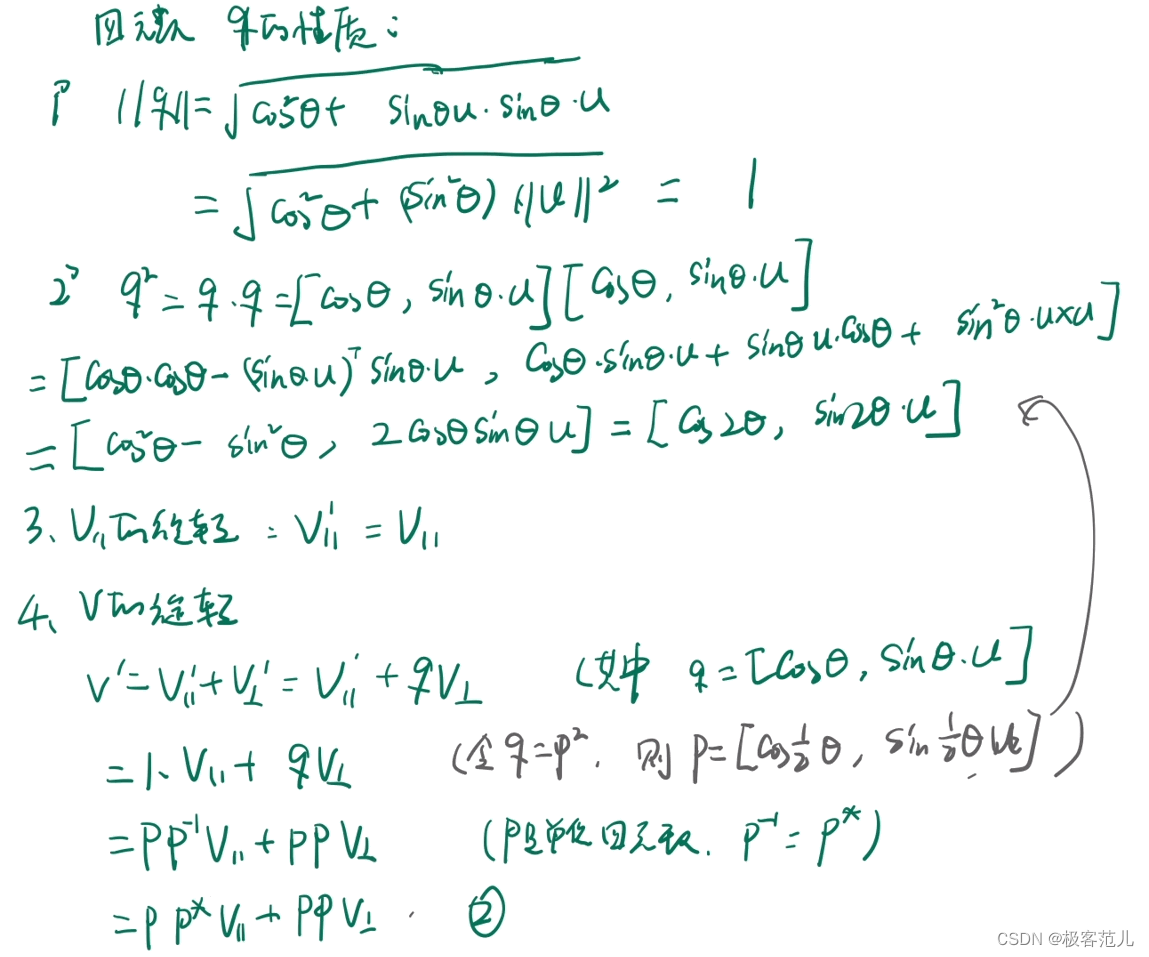 四元数 q的性质:
1° ||q|| = √(cos²θ + sinθu · sinθ·u)
= √(cos²θ + (sin²θ) ||u||²) = 1
2° q² = q·q = [cosθ, sinθ·u][cosθ, sinθ·u]
= [cosθ·cosθ - (sinθ·u)ᵀ sinθ·u, cosθ·sinθ·u + sinθu·cosθ + sin²θ·u×u]
= [cos²θ - sin²θ, 2cosθsinθ u] = [cos2θ, sin2θ·u]
3、V∥的旋转: V∥' = V∥
4、V的旋转
v' = V∥' + V⊥' = V∥' + qV⊥ (其中 q = [cosθ, sinθ·u]
= 1·V∥ + qV⊥ (令 q = p², 则 p = [cos½θ, sin½θ u])
= pp⁻¹V∥ + ppV⊥ (p是单位四元数. p⁻¹ = p*)
= pp*V∥ + ppV⊥. ②
CSDN @极客范儿